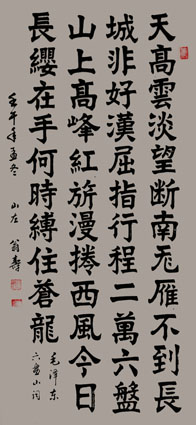 天髙雲淡望断南飛雁不到長
城非好漢屈指行程二萬六盤
山上髙峰紅旂漫捲西風今日
長纓在手何時縛住蒼龍
毛澤东
六盘山词
壬午年孟冬 山左 翁壽